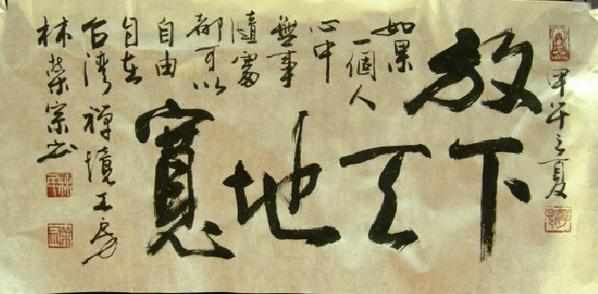 甲午之夏
放下
天地寬
如果
一個人
心中
無事
隨處
都可以
自由
自在
台灣禪境工房
林榮宗書